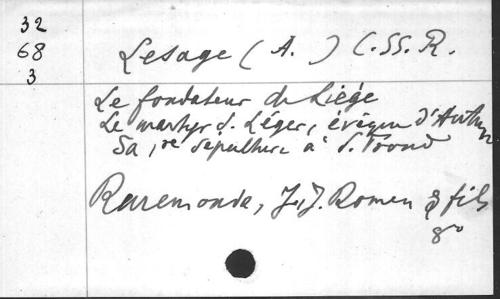 32
68
3
Lesage (A. ) C.SS.R.
Le fondateur de Liége
Le martyr S. Léger, évêque d'Autun
Sa 1re sepulture à S. Trond
Ruremonde, J.J. Romen & fils
8°